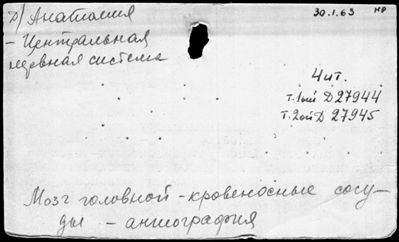 д) Анатомия
30.1.63 нр
- Центральная
нервная система
4 чт.
т.1ый Д27944
т.2ой Д 27945
Мозг головной - кровеносные сосу-
ды - ангиография